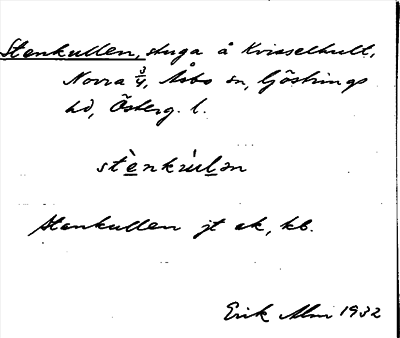 Stenkullen, stuga å Kvisselhult,
Norra 3/4, Åsbo sn, Göstrings
hd, Österg. l.
stè̱nkùḻən
Stenkullen jt ek, kb.
Erik Alm 1932